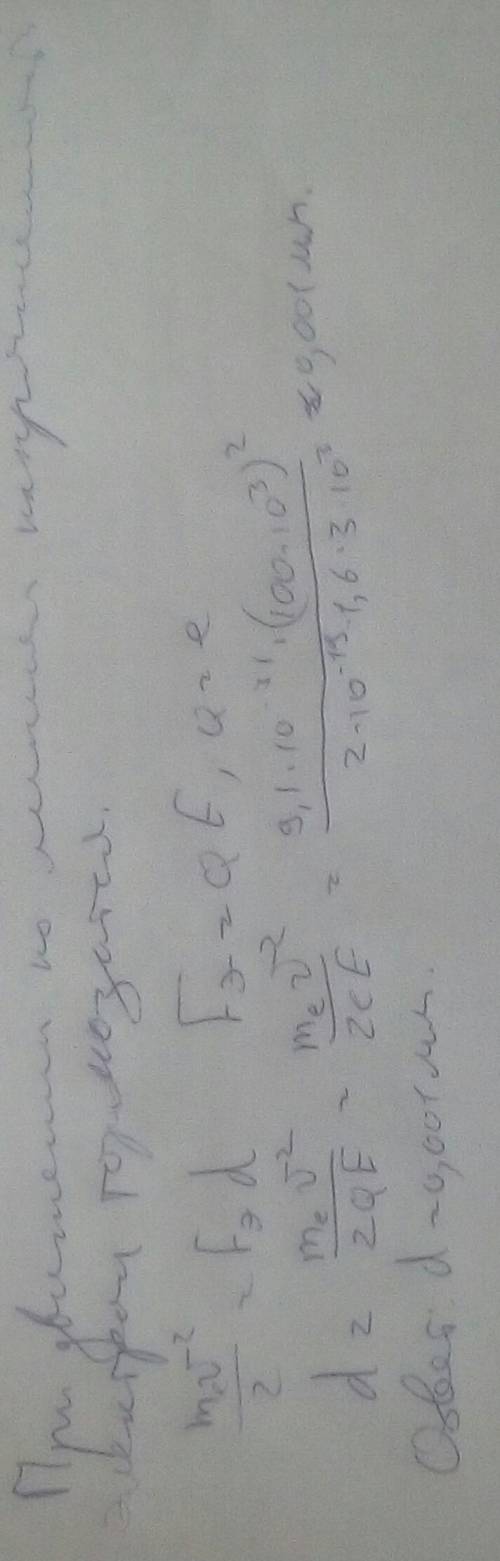 При движении по линиям напряженности
электрон тормозится.
mₑv²/2 = Fэ d Fэ = QE, Q = e
d = mₑv²/2QE = mₑv²/2eE = 9,1·10⁻³¹·(100·10³)²/2·10⁻¹⁹·1,6·3·10³ ≈ 0,001 мм.
Ответ: d = 0,001 мм.